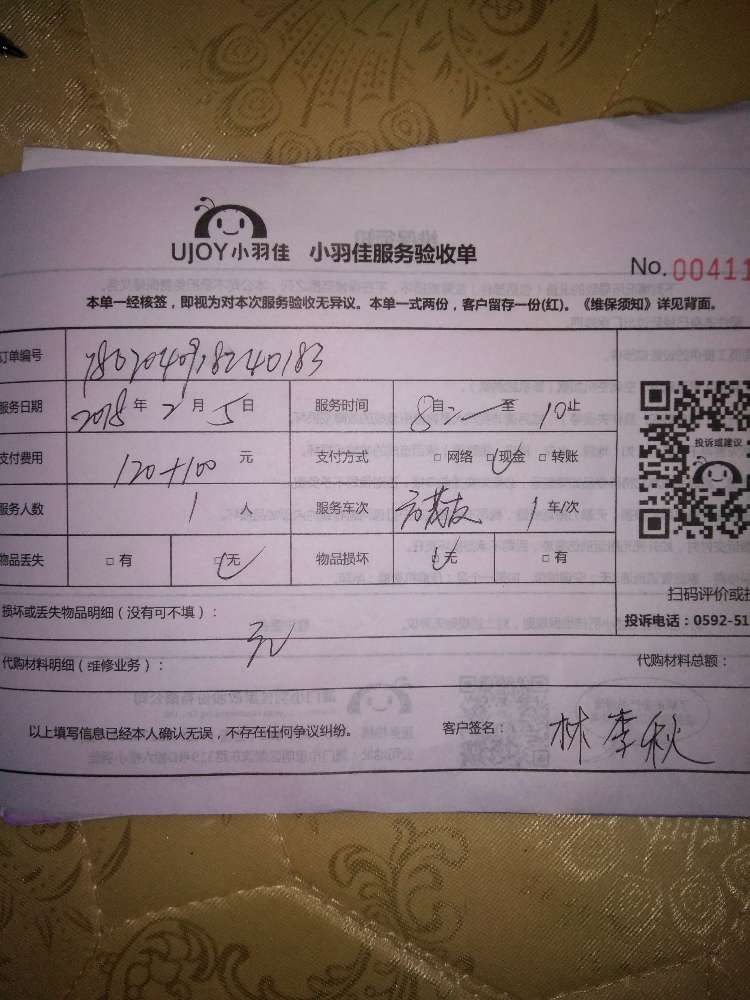 UJOY小羽佳 小羽佳服务验收单
No. 00411
本单一经核签，即视为对本次服务验收无异议。本单一式两份，客户留存一份(红)。《维保须知》详见背面。
订单编号
服务日期 2018 年 2 月 5 日 服务时间 8 自 至 10 止
支付费用 120+100 元 支付方式 □ 网络 □ 现金 □ 转账
服务人数 1 人 服务车次 1 车/次
物品丢失 □ 有 □ 无 物品损坏 □ 无 □ 有
投诉或建议
扫码评价或
投诉电话：0592-51
损坏或丢失物品明细（没有可不填）：
无
代购材料明细（维修业务）： 代购材料总额：
以上填写信息已经本人确认无误，不存在任何争议纠纷。 客户签名： 林李秋